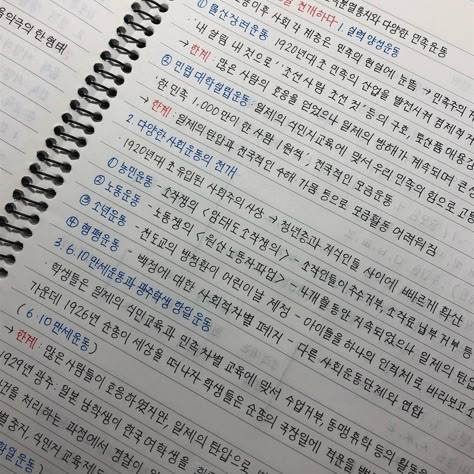 을 전개하다 | 실력 양성운동
① 물산장려운동
1920년대 초 민족의 산업을 발전시켜 경제적
'내 살림 내 것으로' '조선사람 조선 것' 등의 구호,
→ 한계 : 많은 사람의 호응을 얻었으나 일제의 방해가 계속되며
② 민립 대학설립운동 : 일제의 식민지교육에 맞서 우리 민족의 힘으로
'한민족 1,000만이 한 사람 1원씩', 전국적인 모금운동
→ 한계 : 일제의 탄압과 전국적인 수해 가뭄 등으로 모금활동 어려워짐
2. 다양한 사회운동의 전개
1920년대 초 유입된 사회주의 사상 → 청년층과 지식인들 사이에 빠르게 확산
① 농민운동 - 소작쟁의 <암태도 소작쟁의> - 소작인들이 추수거부, 소작료 납부 거부
② 노동운동 - 노동쟁의 <원산 노동자파업> - 4개월 동안 지속되었으나 일제의 탄
③ 소년운동 - 천도교의 방정환이 어린이날 제정 - 아이들을 하나의 인격체로 바라보고
④ 형평운동 - 백정에 대한 사회적차별 폐지 - 다른 사회운동단체와 연합
3. 6.10 만세운동과 광주학생 항일운동
학생들은 일제의 식민교육과 민족차별 교육에 맞서 수업거부, 동맹휴학 등의 활동
가운데 1926년 순종이 세상을 떠나자 학생들은 순종의 국장일에
(6.10 만세운동)
→ 한계 : 많은 사람들이 호응하였지만, 일제의 탄압으로
1929년 광주 : 일본 남학생이 한국 여학생을
건을 처리하는 과정에서 경찰이
별중지, 식민지 교육제도
학생운동)